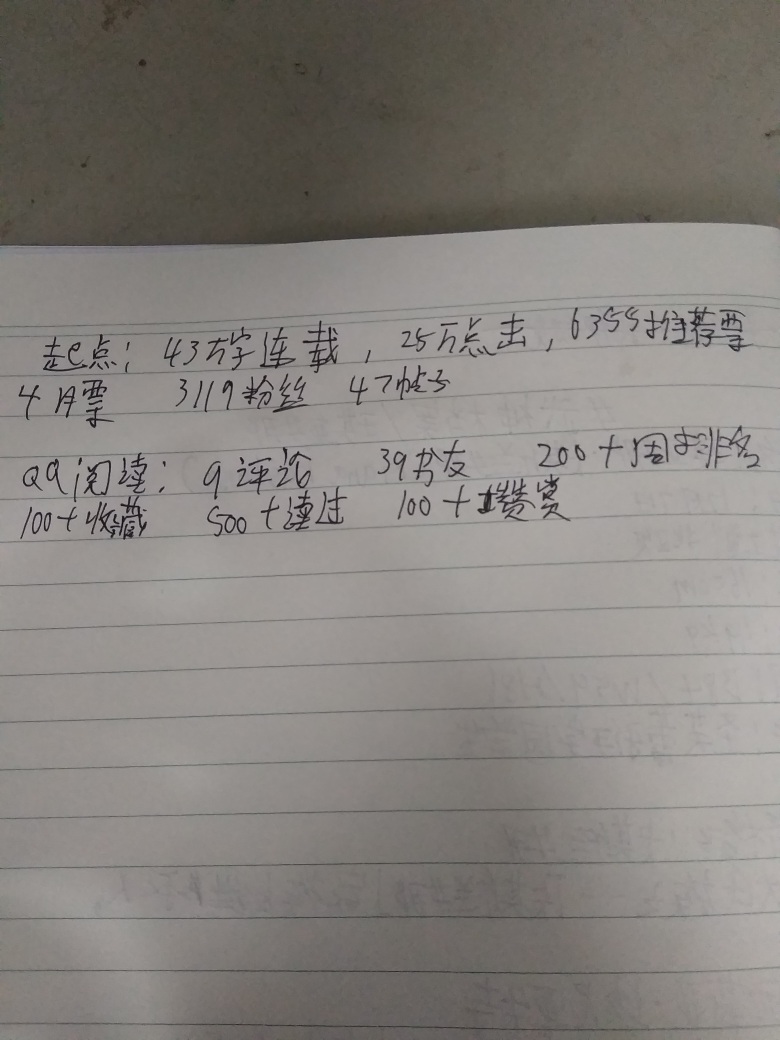 起点：43万字连载，25万点击，6355推荐票
4月票 3119粉丝 47帖子
QQ阅读：9评论 39书友 200+周排名
100+收藏 500+读过 100+赞赏